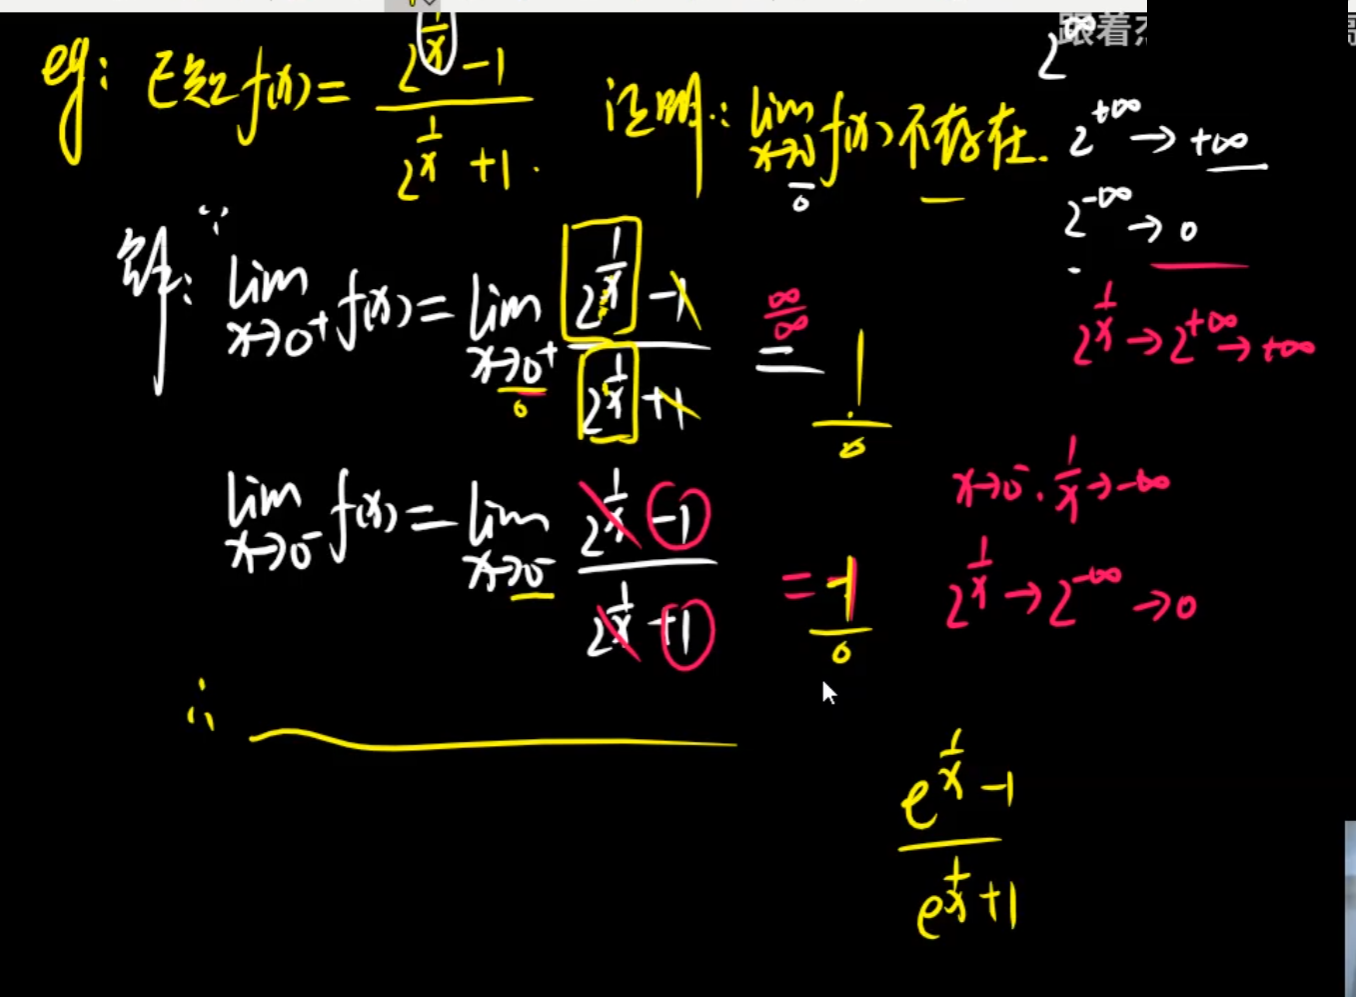 eg: 已知 f(x) = (2^(1/x) - 1)/(2^(1/x) + 1). 证明: lim x→0 f(x) 不存在.
跟着
2^∞
2^(+∞) → +∞
2^(-∞) → 0
2^(1/x) → 2^(+∞) → +∞
解: ∵ lim x→0⁺ f(x) = lim x→0⁺ (2^(1/x) - 1)/(2^(1/x) + 1) ∞/∞ = 1
lim x→0⁻ f(x) = lim x→0⁻ (2^(1/x) - 1)/(2^(1/x) + 1) = -1
x→0⁻. 1/x → -∞
2^(1/x) → 2^(-∞) → 0
∴
(e^(1/x) - 1)/(e^(1/x) + 1)